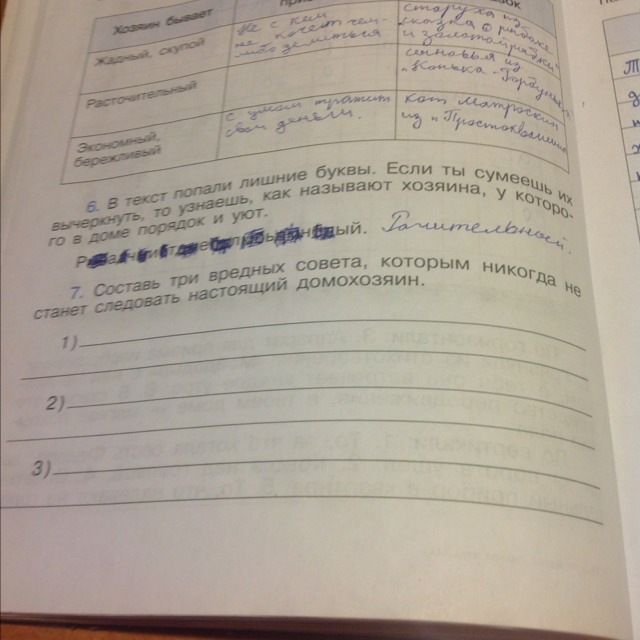 Хозяин бывает
Жадный, скупой
Не с кем
не хочет чем-
либо делиться
старуха из
сказка о рыбаке
и золотой рыбки
Расточительный
из
"Конька-Горбунка"
Экономный,
бережливый
с умом тратит
свои деньги.
кот Матроскин
из "Простоквашино"
6. В текст попали лишние буквы. Если ты сумеешь их
вычеркнуть, то узнаешь, как называют хозяина, у которо-
го в доме порядок и уют.
ый. Рачительный.
7. Составь три вредных совета, которым никогда не
станет следовать настоящий домохозяин.
1)
2)
3)